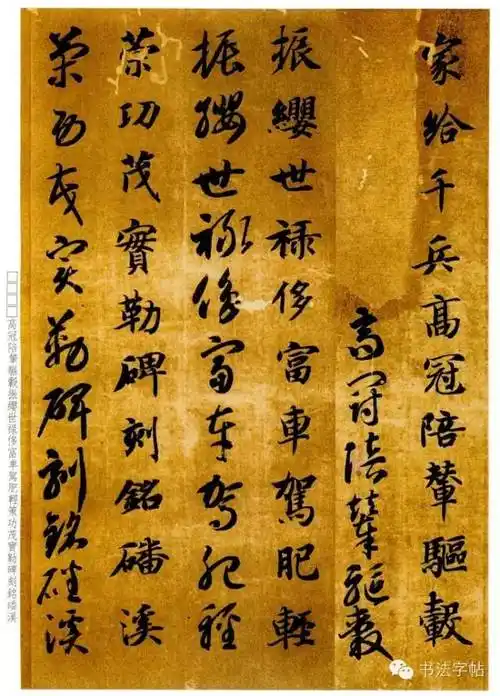 家給千兵高冠陪輦驅轂
高冠陪輦驅轂
振纓世禄侈富車駕肥輕
振纓世禄侈富車駕肥輕
策功茂實勒碑刻銘磻溪
策功茂實勒碑刻銘磻溪
□□□□高冠陪輦驅轂振纓世禄侈富車駕肥輕策功茂實勒碑刻銘磻溪
书法字帖